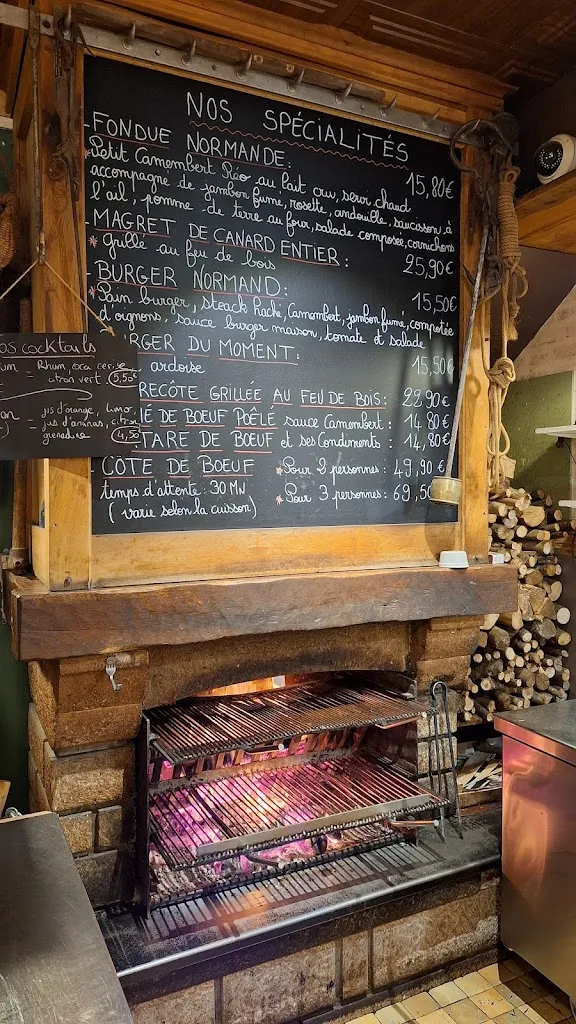 NOS SPÉCIALITÉS
FONDUE NORMANDE:
Petit Camembert Réo au lait cru, servi chaud 15,80€
accompagne de jambon fumé, rosette, andouille, saucisson à
l'ail, pomme de terre au four, salade composée, cornichons
MAGRET DE CANARD ENTIER: 25,90€
* Grillé au feu de bois
BURGER NORMAND: 15,50€
* Pain burger, steack haché, Camembert, jambon fumé, compotée
d'oignons, sauce burger maison, tomate et salade
RGER DU MOMENT: 15,50€
ardoise
RECÔTE GRILLÉE AU FEU DE BOIS: 22,90€
E DE BOEUF POÊLÉ sauce Camembert: 14,80€
TARE DE BOEUF et ses Condiments: 14,80€
CÔTE DE BOEUF * Pour 2 personnes: 49,90€
temps d'attente: 30 MN * Pour 3 personnes: 69,50
(varie selon la cuisson)
os cocktails
um - Rhum, cerise
- citron vert (5,50€)
- jus d'orange, citron
- jus d'ananas,
grenadine (4,50€)